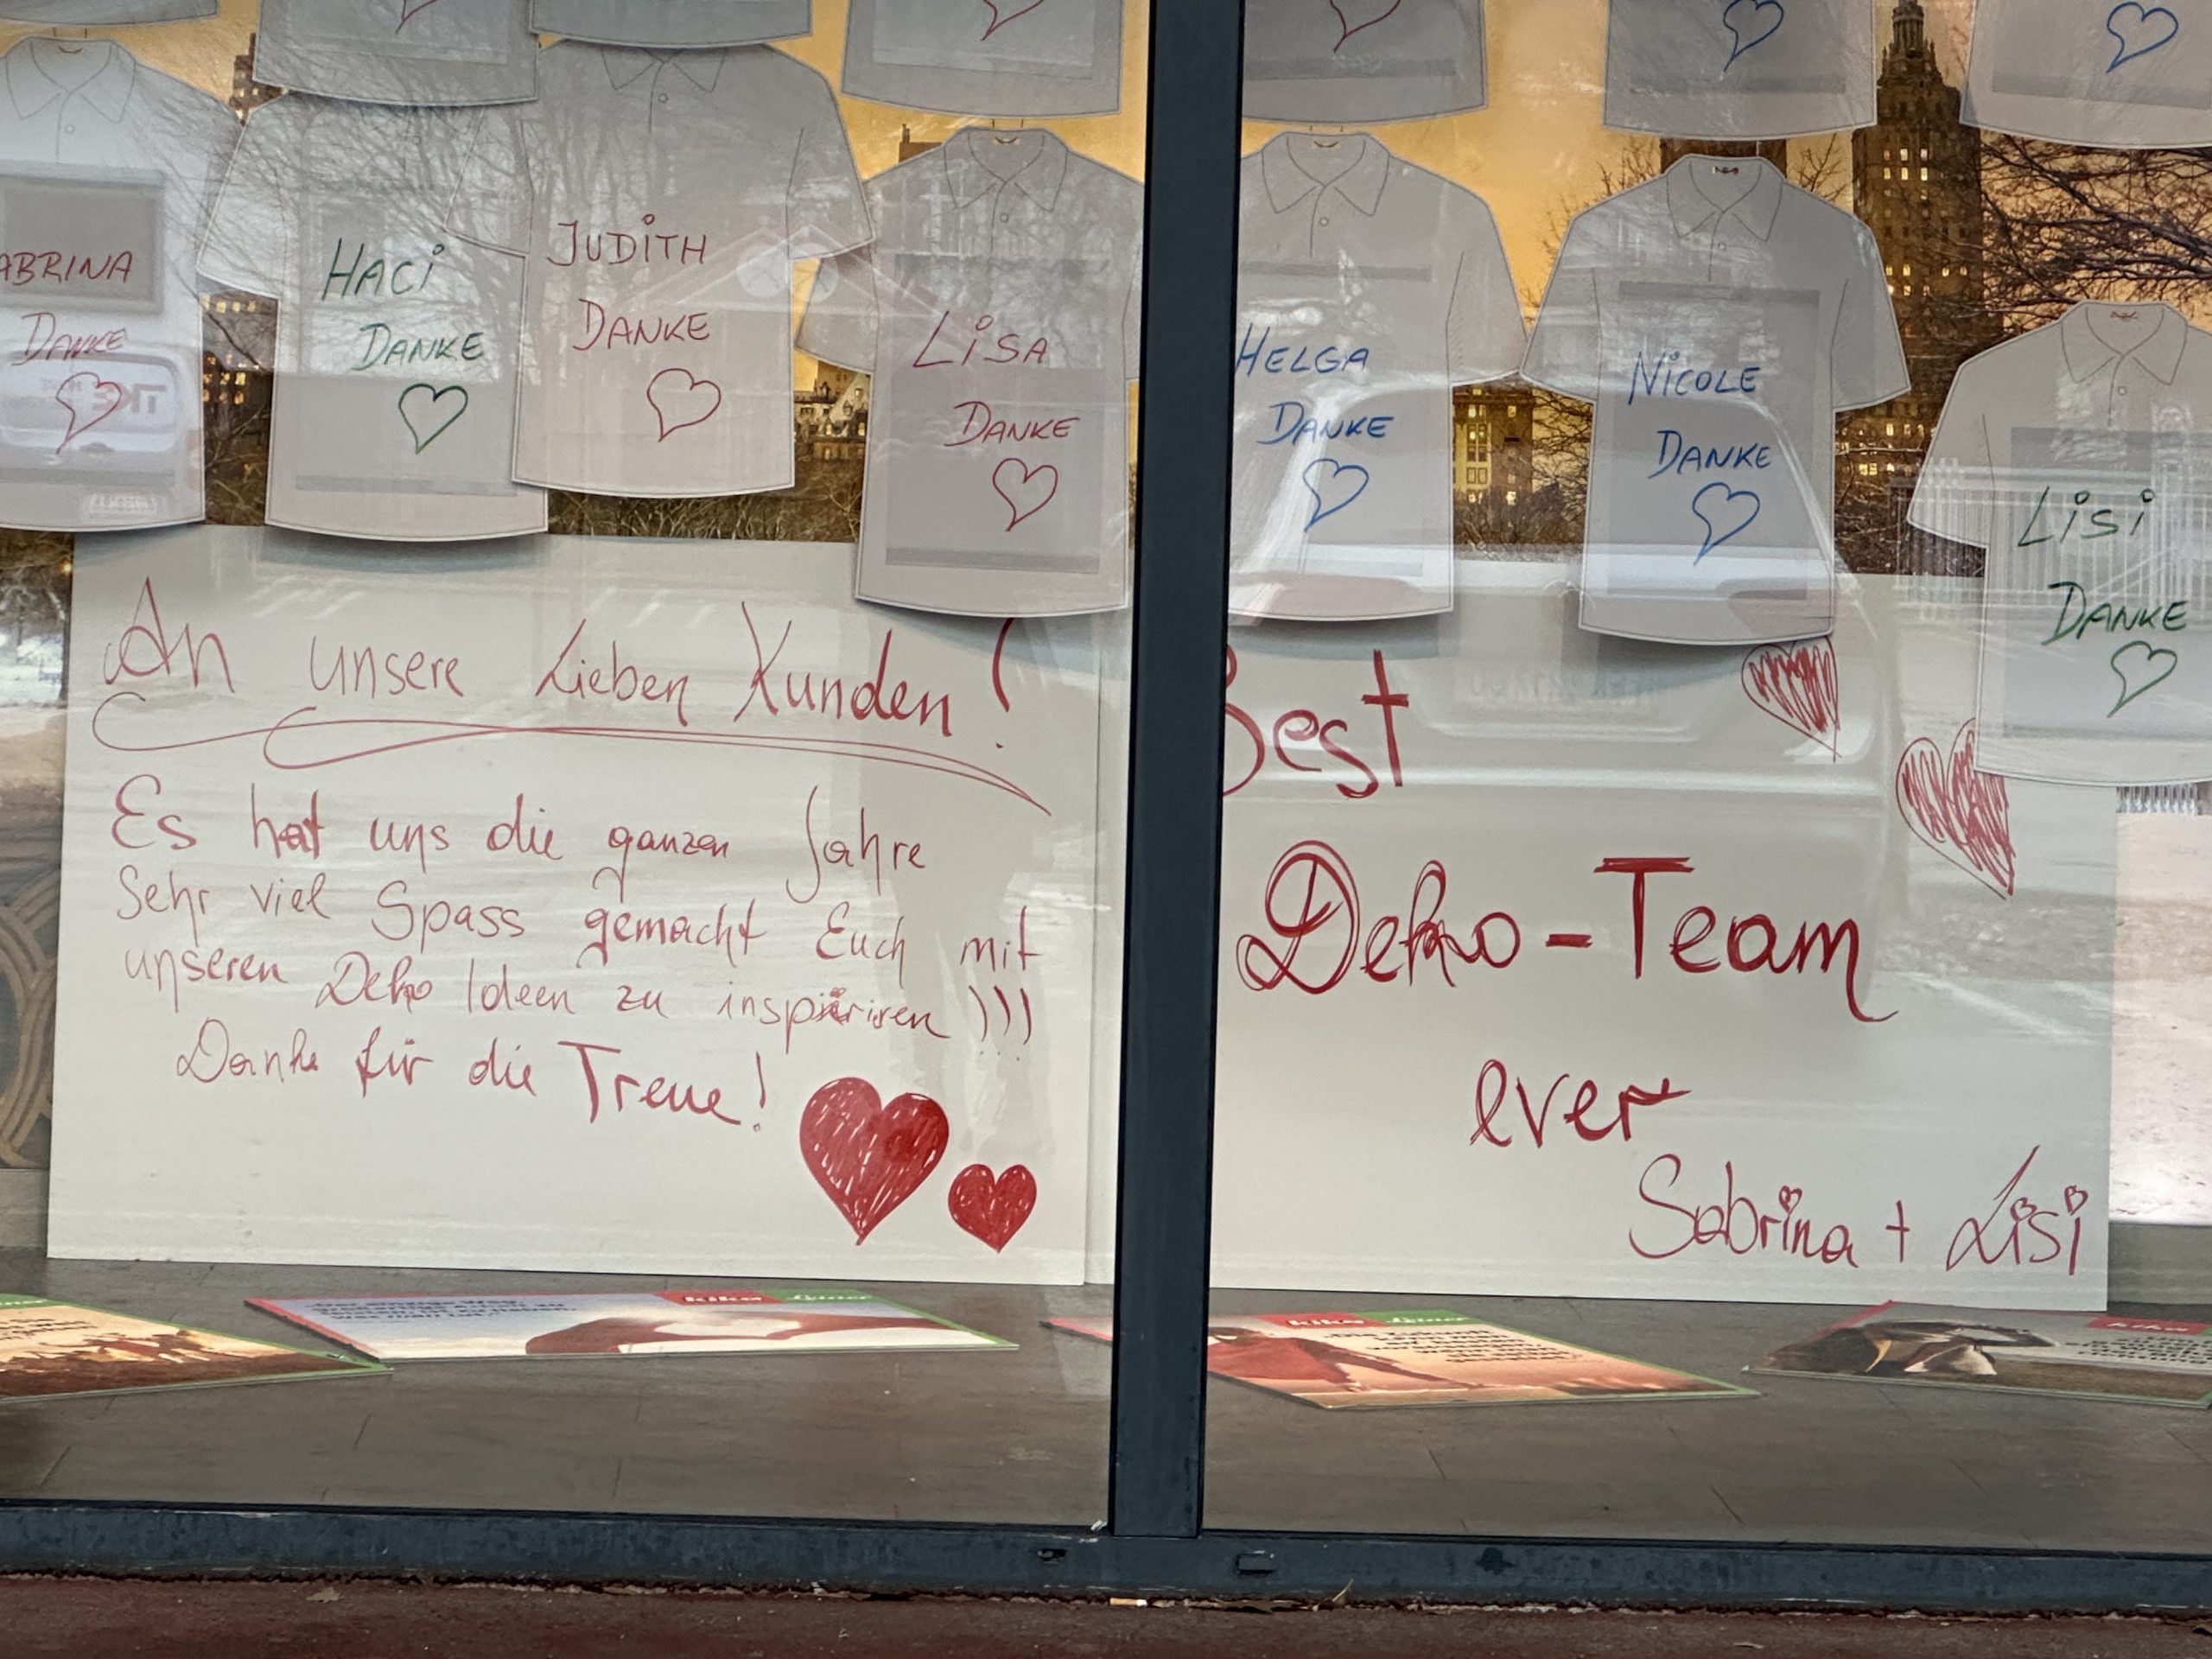 ABRINA
DANKE
HACi
DANKE
JUDiTH
DANKE
LiSA
DANKE
HELGA
DANKE
NiCOLE
DANKE
LiSi
DANKE
An unsere Lieben Kunden!
Es hat uns die ganzen Jahre
Sehr viel Spass gemacht Euch mit
unseren Deko Ideen zu inspiriren )))
Danke für die Treue!
Best
Deko-Team
ever
Sabrina + Lisi
kika Leiner
kika Leiner
kika